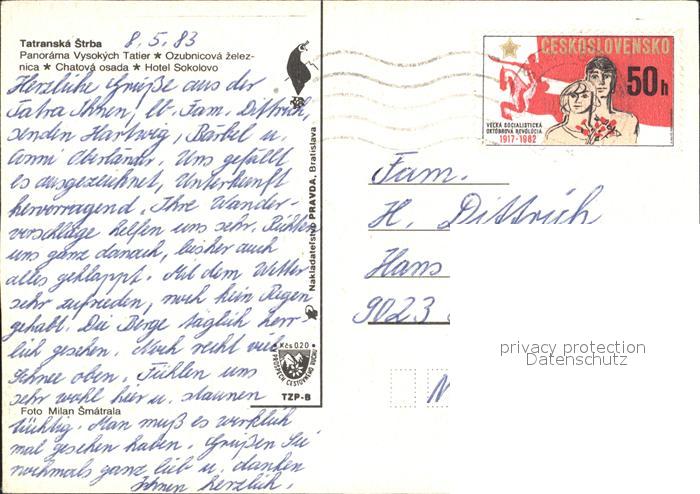 Tatranská Štrba 8.5.83
Panoráma Vysokých Tatier ★ Ozubnicová želez-
nica ★ Chatová osada ★ Hotel Sokolovo
Herzliche Grüße aus der
Tatra Ihnen, lb. Fam. Dittrich,
senden Hartwig, Bärbel u.
Conni Oberländer. Uns gefällt
es ausgezeichnet, Unterkunft
hervorragend. Ihre Wander-
vorschläge helfen uns sehr. Richten
uns ganz danach, bisher auch
alles geklappt. Mit dem Wetter
sehr zufrieden, noch kein Regen
gehabt. Die Berge täglich herr-
lich gesehen. Noch recht viel
Schnee oben. Fühlen uns
sehr wohl hier u. staunen
Foto Milan Šmátrala
tüchtig. Man muß es wirklich
mal gesehen haben. Grüßen Sie
nochmals ganz lieb u. danken
Ihnen herzlich.
Nakladateľstvo PRAVDA, Bratislava
Kčs 0.20
V PROSPECH CESTOVNÉHO RUCHU
TZP-B
ČESKOSLOVENSKO
50h
VEĽKÁ SOCIALISTICKÁ
OKTÓBROVÁ REVOLÚCIA
1917-1982
Fam.
H. Dittrich
Hans
9023
privacy protection
Datenschutz